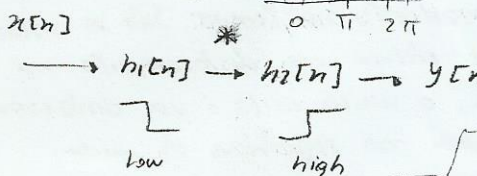 0 π 2π
x[n] *
h1[n] → h2[n] → y[n
low high